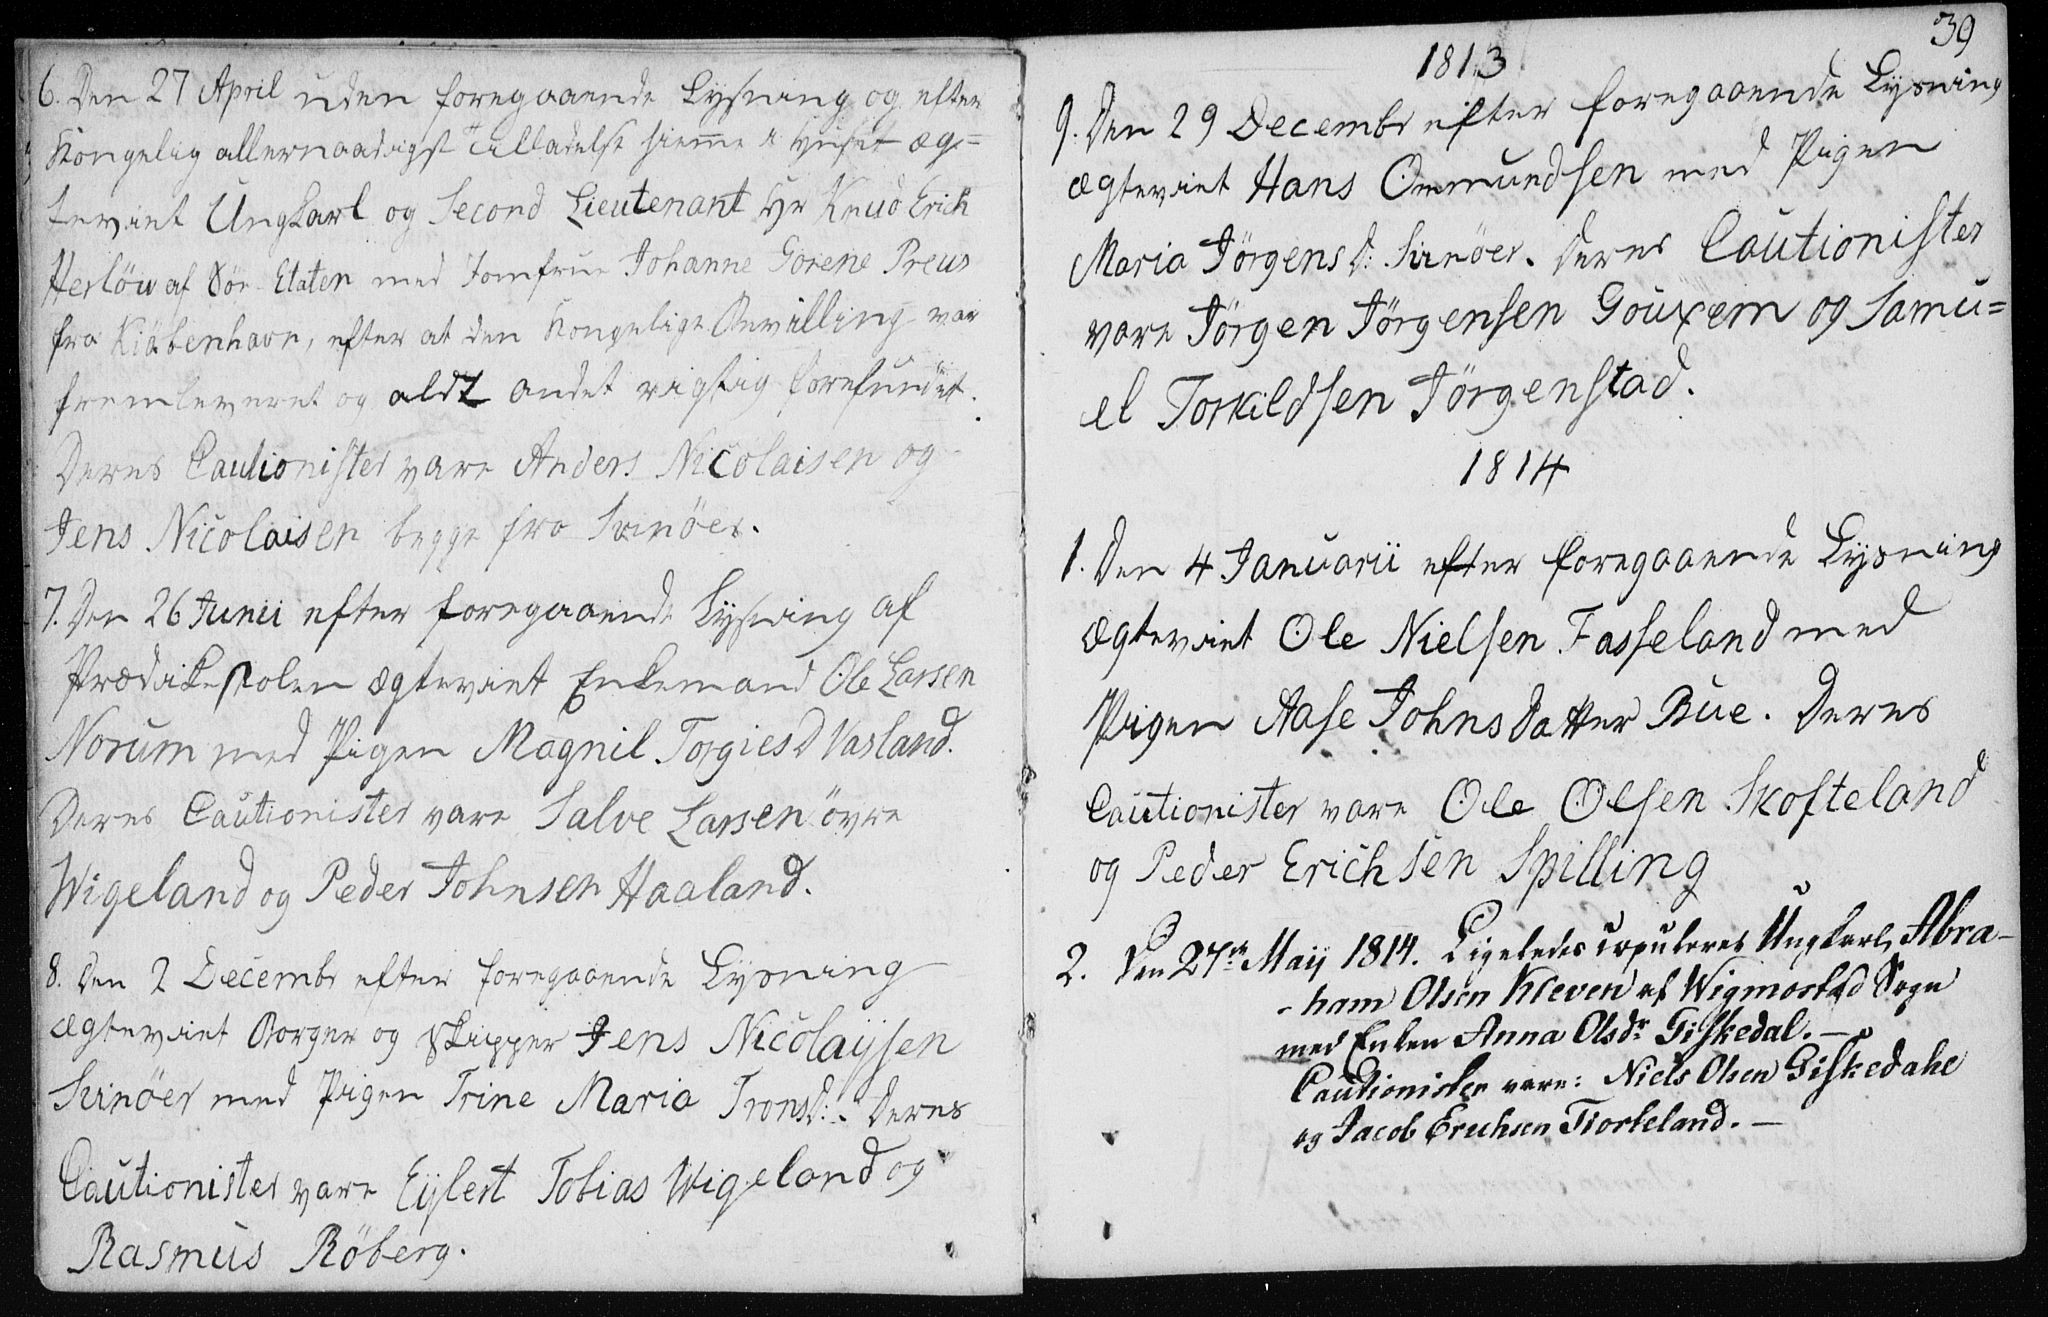 6. Den 27 April uden foregaaende Lysning og efter
Kongelig allernaadigst Tilladelse hiemme i Huset æg=
teviet Ungkarl og Second Lieutenant Hr Knud Erich
Herlöw af Söe Etaten med Jomfrue Johanne Gorene Preus
fra Kiöbenhavn, efter at den Kongelige Bevilling var
fremleveret og aldt andet rigtig forefundet.
Deres Cautionister vare Anders Nicolaisen og
Jens Nicolaisen begge fra Svinöer.
7. Den 26 Junii efter foregaaende Lysning af
Prædikestolen ægteviet Enkemand Ole Larsen
Norum med Pigen Magnil Torgiesd Vasland.
Deres Cautionister vare Salve Larsen övre
Wigeland og Peder Johnsen Haaland.
8. Den 2 Decembr efter foregaaende Lysning
ægteviet Borger og Skipper Jens Nicolaysen
Svinöer med Pigen Trine Maria Tronsd:. Deres
Cautionister vare Eylert Tobias Wigeland og
Rasmus Röberg.
39
1813
9. Den 29 Decembr efter foregaaende Lysning
ægteviet Hans Ommundsen med Pigen
Maria Jörgensd: Svinöer. Deres Cautionister
vare Jörgen Jörgensen Gouxem og Samu=
el Torkildsen Jörgenstad.
1814
1. Den 4 Januarii efter foregaaende Lysning
ægteviet Ole Nielsen Fasseland med
Pigen Aase Johnsdatter Bue. Deres
Cautionister vare Ole Olsen Skofteland
og Peder Erichsen Spilling
2. Den 27de Maij 1814. Ligeledes copuleret Ungkarl, Abra-
-ham Olsen Kleven af Wigmostad Sogn
med Enken Anna Olsdr Giskedal.—
Cautionister vare: Niels Olsen Giskedahl
og Jacob Erichsen Tiorteland.—